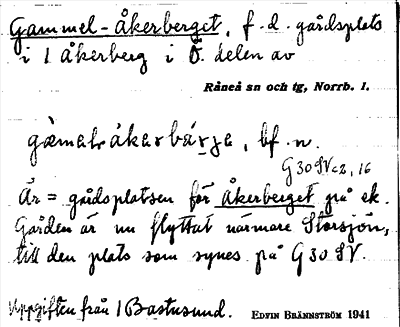 Gammel-Åkerberget, f.d. gårdsplats
i 1 Åkerberg i Ö. delen av
Råneå sn och tg, Norrb. l.
bf. n.
G 30 SV c2, 16
Är = gårdsplatsen för Åkerberget på ek.
Gården är nu flyttat närmare Storsjön,
till den plats som synes på G 30 SV.
Uppgiften från 1 Bastusund. EDVIN BRÄNNSTRÖM 1941